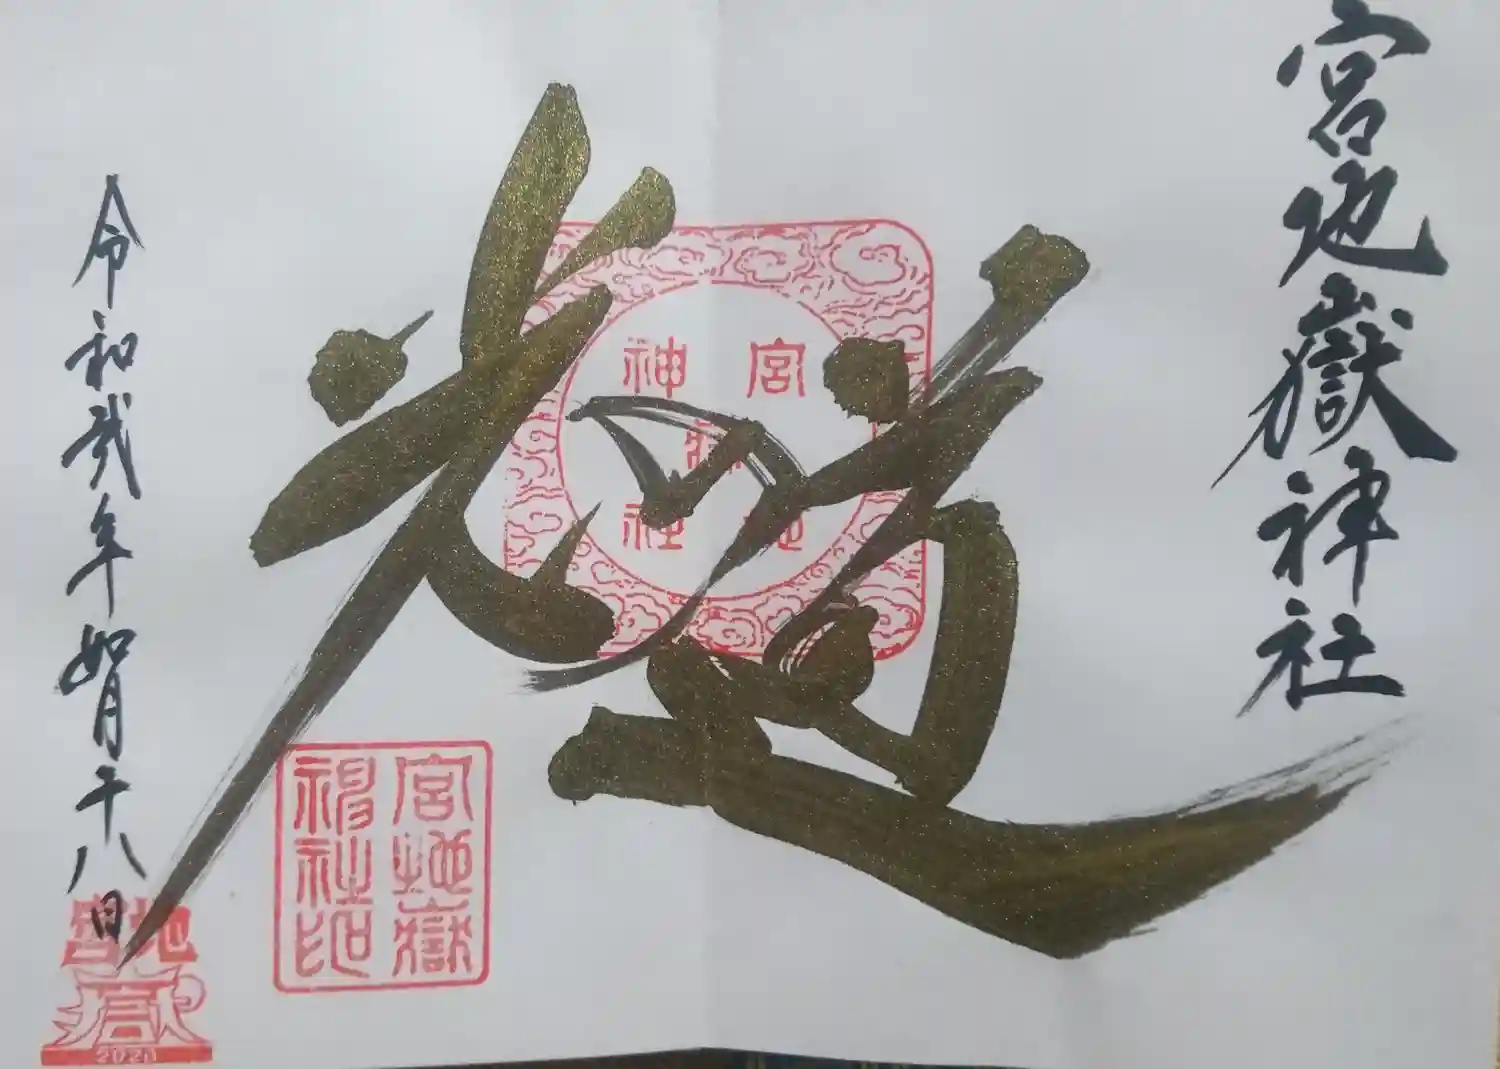 宮地嶽神社
光道
宮地
嶽
神社
宮地嶽
神社印
令和弐年如月十八日
宮地
嶽
2020